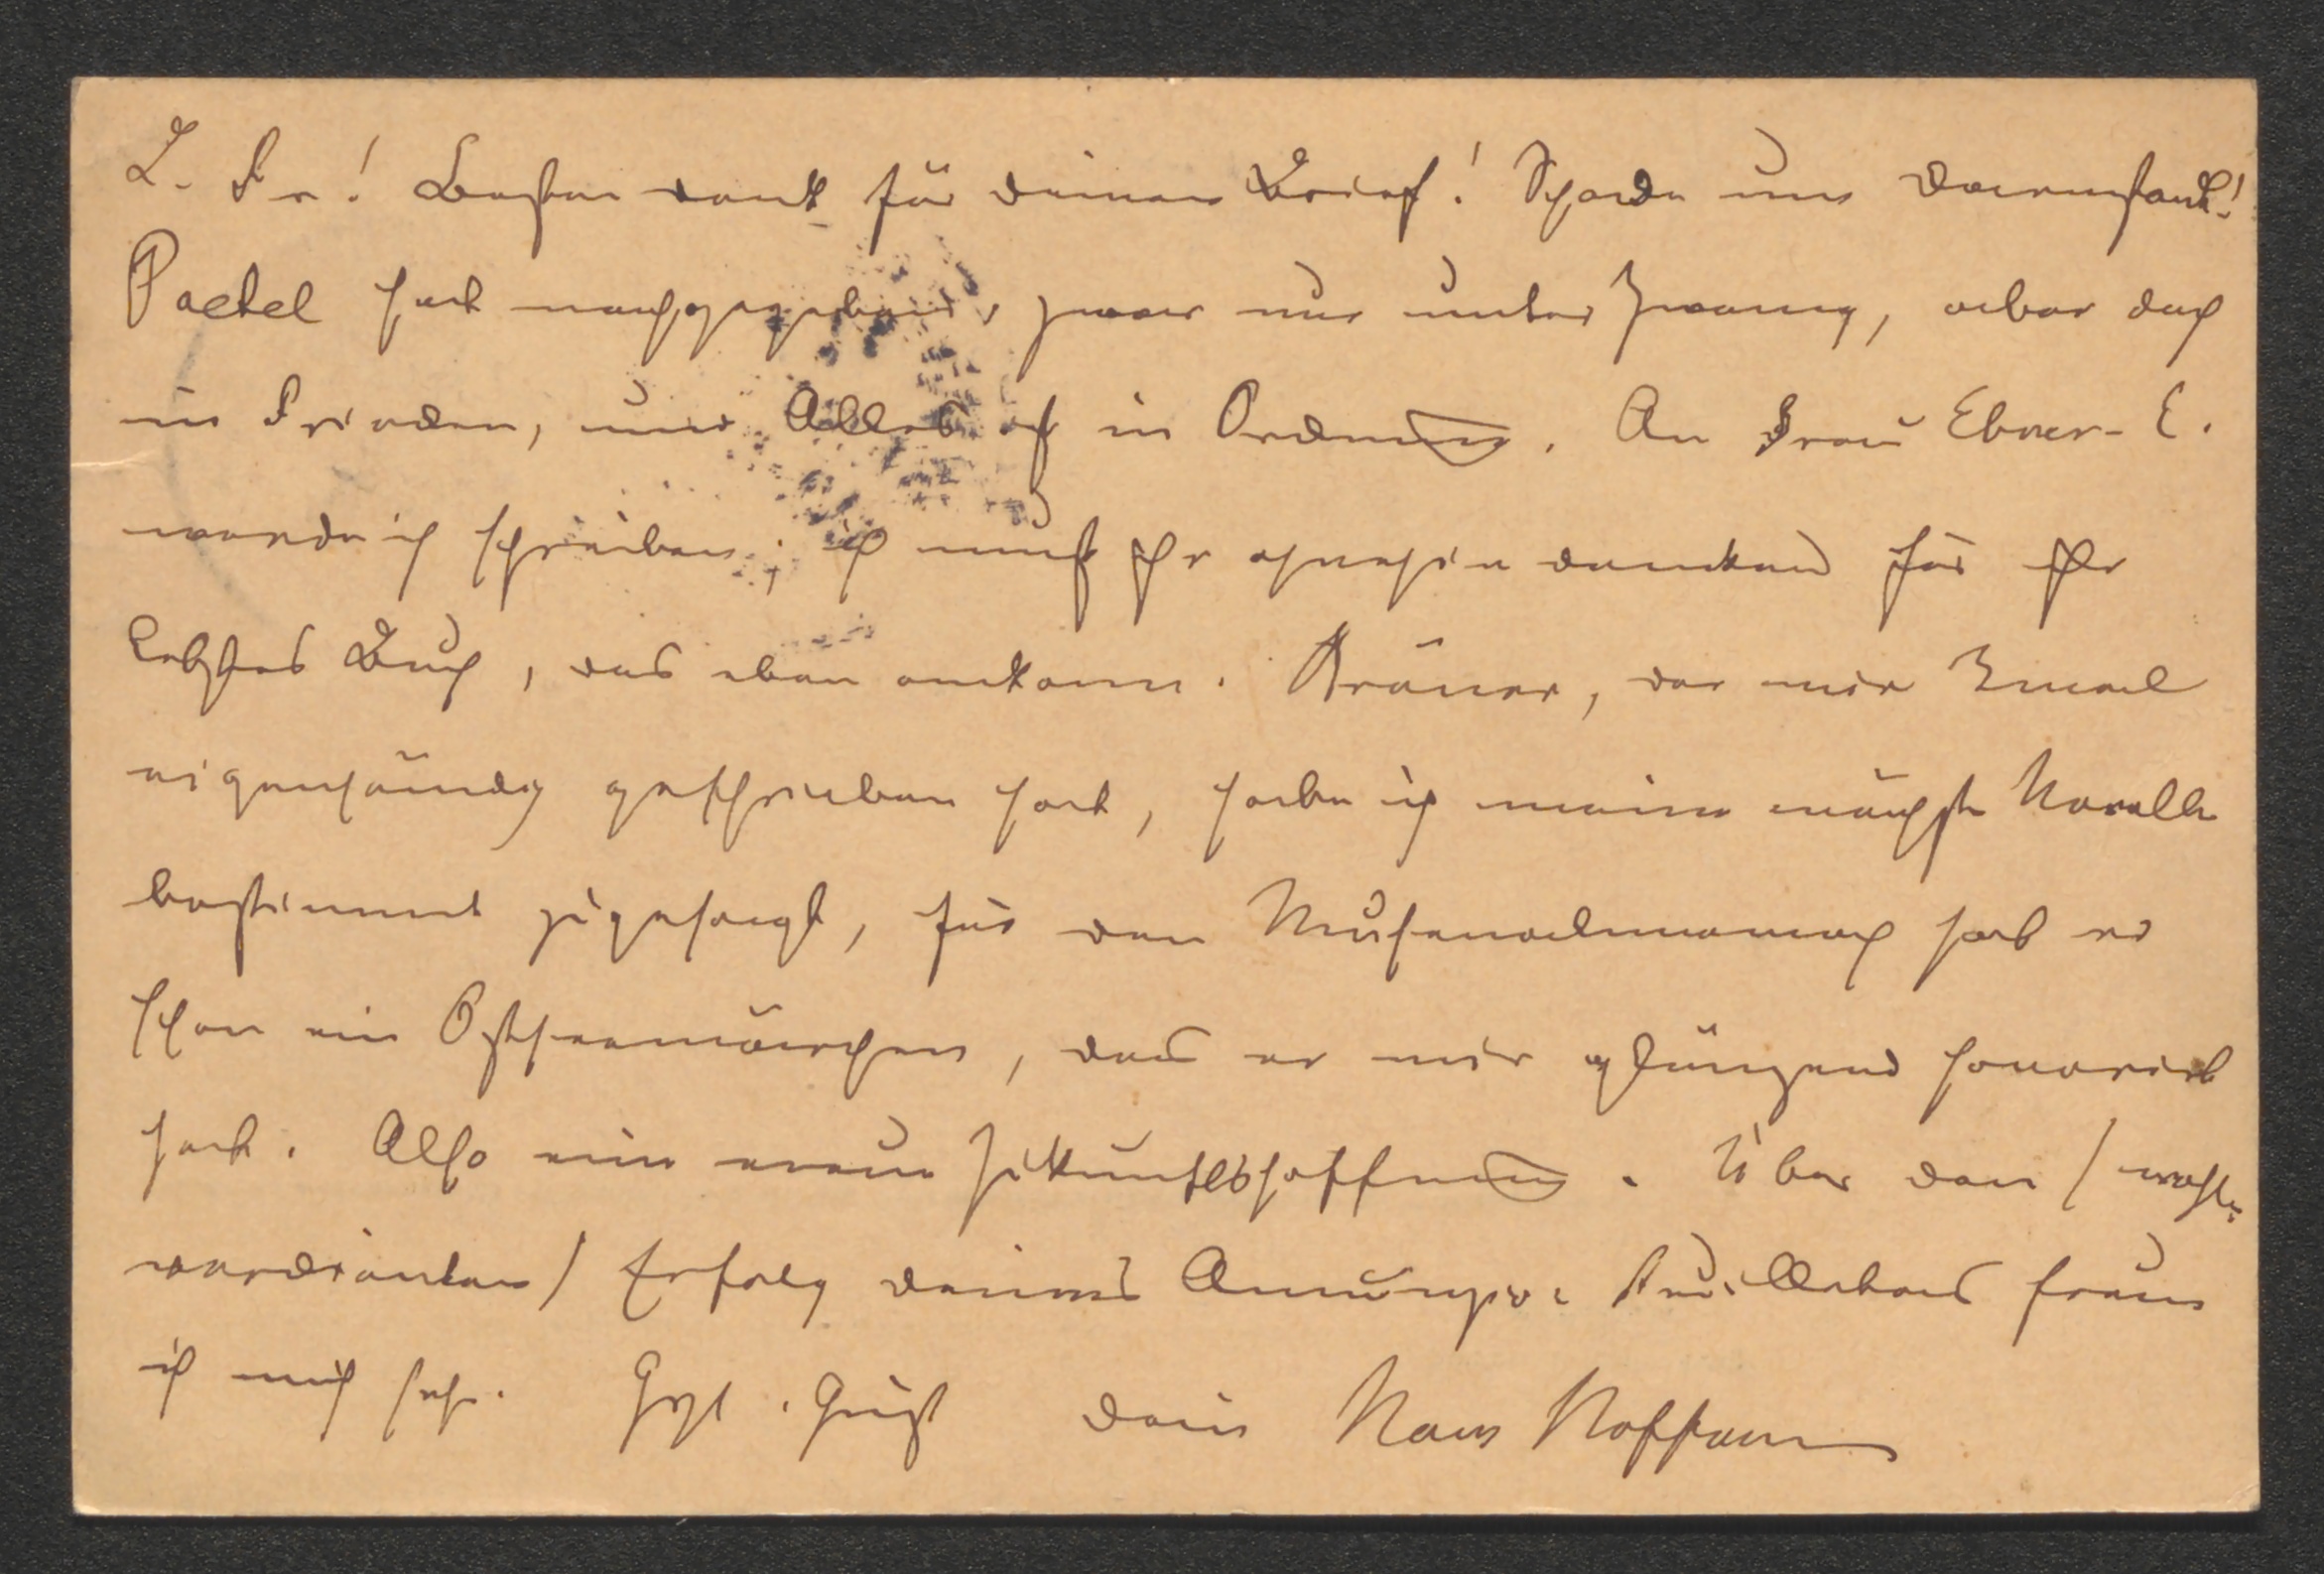 L. Fr! Besten Dank für deinen Brief! Schade um Darmstadt!
Paetel hat nachgegeben, zwar nur unter Zwang, aber doch
in Frieden, und Alles ist in Ordnung. An Frau Ebner-E.
werde ich schreiben; ich muß ihr ohnehin danken für ihr
letztes Buch, das eben ankam. Kröner, der mir 3mal
eigenhändig geschrieben hat, habe ich meine nächste Novelle
bestimmt zugesagt, für den Musenalmanach hat er
schon ein Ostseemärchen, das er mir glänzend honorirt
hat. Also eine neue Zukunftshoffnung. Über den / wohl-
verdienten / Erfolg deines Feuilletons freue
ich mich sehr. Hzl. Gruß dein Hans Hoffmann